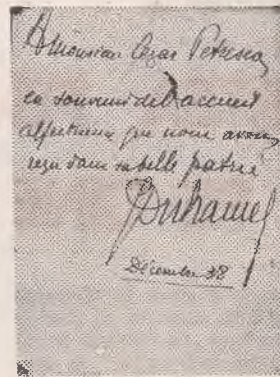 A Monsieur Cezar Petrescu
en souvenir de l'accueil
affectueux que nous avons
reçu dans sa belle patrie
GDuhamel
Décembre 38